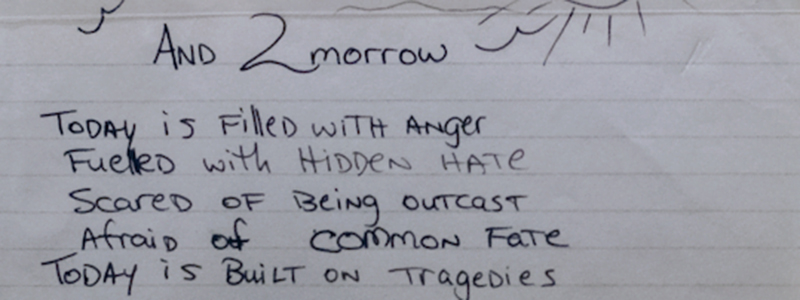 AND 2morrow
TODAY is Filled WITH ANGer
Fueled with HIDDEN HATE
Scared OF Being OUTCAST
Afraid of COMMON FATE
TODAY is BUILT ON Tragedies